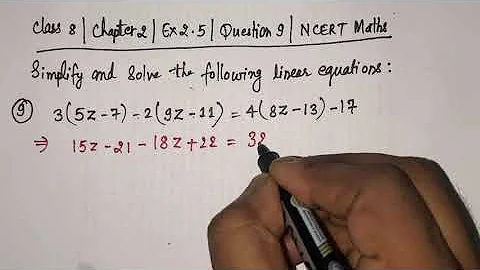 Class 8 | Chapter 2 | Ex 2.5 | Question 9 | NCERT Maths
Simplify and solve the following linear equations :
⑨ 3(5z-7)-2(9z-11) = 4(8z-13)-17
⇒ 15z-21-18z+22 = 32